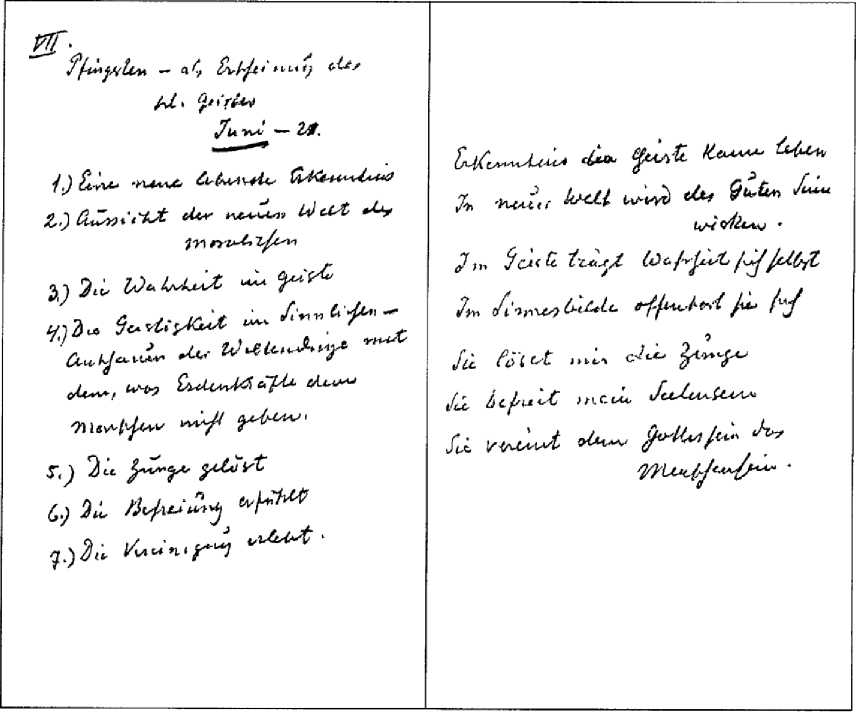 VII.
Pfingsten – als Erscheinung des
hl. Geistes
Juni – 21.
1.) Eine neue lebende Erkenntnis
2.) Aussicht der neuen Welt des
moralischen
3.) Die Wahrheit im Geiste
4.) Die Geistigkeit im Sinnlichen –
Anschauen der Weltendinge mit
dem, was Erdenkräfte dem
Menschen nicht geben.
5.) Die Zunge gelöst
6.) Die Befreiung erfühlt
7.) Die Vereinigung erlebt.
Erkenntnis dem Geiste kann leben
In neuer Welt wird des Guten Sinn
wirken.
Im Geiste trägt Wahrheit sich selbst
Im Sinnesbilde offenbart sie sich
Sie löset mir die Zunge
Sie befreit mein Seelensein
Sie vereint dem Gottessein das
Menschensein.